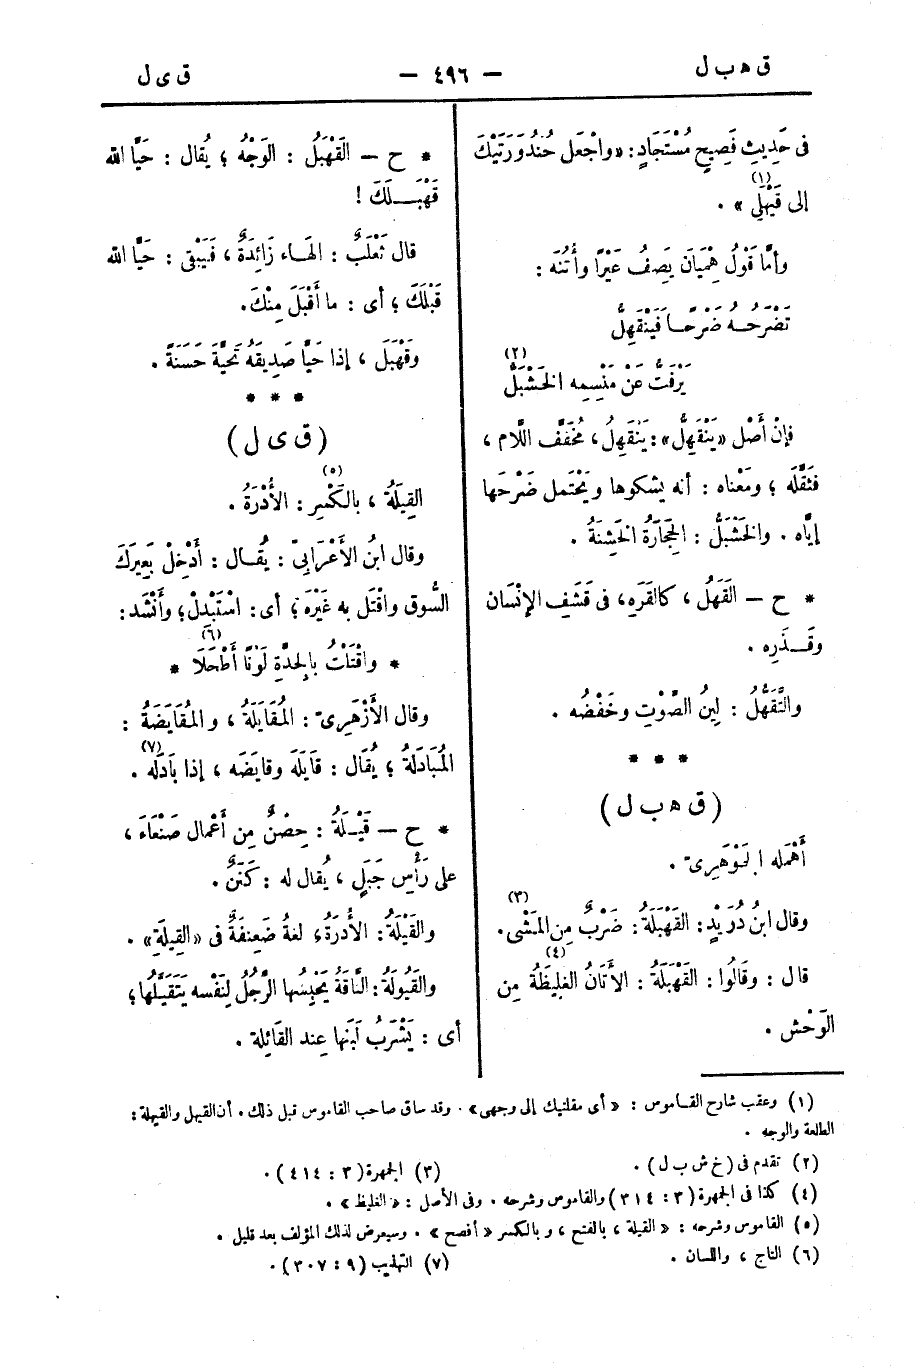 ق ه ب ل — ٤٩٦ — ق ى ل
فى حَدِيثٍ فَصِيحٍ مُسْتَجَادٍ : «واجْعَل حُندُورَتَيْكَ
إلى قَيْهَلِى (١) » .
وأمّا قَوْلُ هِمْيَانَ يَصِفُ عَيْرًا وأُتُنَه :
تَضْرَحُـه ضَرْحًـا فَيَنْقَهِلُّ
يَرْفَتُّ عَنْ مَنْسِمِه الخَشْبَلُّ (٢)
فإنّ أَصْل «يَنْقَهِلُّ» : يَنْقَهِلُ ، مُخَفَّف اللَّام ،
فثَقَّلَه ؛ ومَعْناه : أنه يشكوها ويَحْتَمل ضَرْحَها
إيَّاه . والخَشْبَلُّ : الحِجَارَةُ الخَشِنَةُ .
* ح – القَهَلُ ، كالقَرَهِ ، فى قَشَفِ الإنْسَان
وقَــذَرِه .
والتَّقَهُّلُ : لِينُ الصَّوْتِ وخَفْضُه .
* * *
(ق ه ب ل)
أَهْمَله الجَوْهَرِىّ .
وقال ابنُ دُرَيْدٍ : القَهْبَلَةُ : ضَرْبٌ مِن المَشْى (٣) .
قال : وقَالُوا : القَهْبَلَةُ : الأَتَانُ الغَلِيظَةُ (٤) مِن
الوَحْش .
* ح – القَهْبَلُ : الوَجْهُ ؛ يُقال : حَيَّا الله
قَهْبَــلَكَ !
قال ثَعْلَبٌ : الهَـاء زَائِدَةٌ ، فَيَبْقى : حَيَّا الله
قَبْلَكَ ؛ أى : ما أَقْبَلَ مِنْكَ .
وقَهْبَلَ ، إذا حَيَّا صَدِيقَه تَحِيَّةً حَسَنَةً .
* * *
(ق ى ل)
القِيلَةُ ، بالكَسْرِ : الأُدْرَةُ (٥) .
وقال ابنُ الأَعْرَابِىّ : يُقَـال : أَدْخِلْ بَعِيرَكَ
السُّوق واقْتَل به غَيْرَه ؛ أى : اسْتَبْدِلْ ؛ وأَنْشَد :
* واقْتَلْتُ بالجِدَّةِ لَوْنًا أَطْحَلَا (٦) *
وقال الأَزْهَرِىّ : المُقَايَلَةُ ، والمُقَايَضَةُ :
المُبَادَلَةُ ؛ يُقَال : قَايَلَه وقايَضَه ، إذا بَادَلَه (٧) .
* ح – قَيْـلَةُ : حِصْنٌ مِن أَعْمال صَنْعَاءَ ،
على رَأْسِ جَبَلٍ ، يُقال له : كَنَنٌ .
والقَيْلَةُ : الأُدْرَةُ ، لغةٌ ضَعِيفَةٌ فى «القِيلَةِ» .
والقَيُولَةُ : النَّاقَةُ يَحْبِسُها الرَّجُلُ لِنَفْسه يَتَقَيَّلُها ؛
أى : يَشْرَبُ لَبَنَها عِند القَائِلَة .
(١) وعقب شارح القـاموس : «أى مقلتيك إلى وجهى» . وقد ساق صاحب القاموس قبل ذلك . أن القيهل والقيهلة :
الطلعة والوجه .
(٢) تقدم فى (خ ش ب ل) . (٣) الجمهرة (٣ : ٤١٤) .
(٤) كذا فى الجمهرة (٣ : ٣١٤) والقاموس وشرحه . وفى الأصل : «الغليظ» .
(٥) القاموس وشرحه : «القيلة ، بالفتح ، وبالكسر «أفصح» . وسيعرض لذلك المؤلف بعد قليل .
(٦) التاج ، واللسان . (٧) التهذيب (٩ : ٣٠٧) .